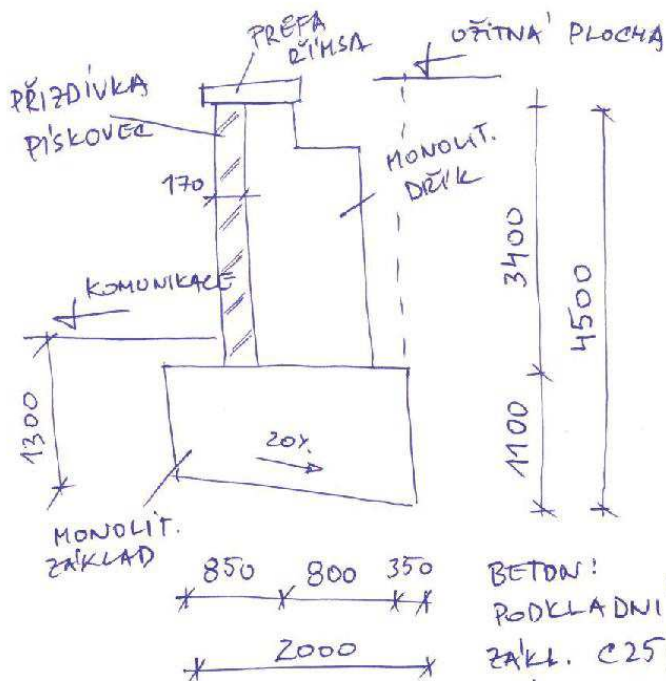 PREFA
ŘÍMSA
UŽITNÁ PLOCHA
PŘIZDÍVKA
PÍSKOVEC
MONOLIT.
DŘÍK
170
KOMUNIKACE
3400
4500
1300
20%
1100
MONOLIT.
ZÁKLAD
850 800 350
2000
BETON:
PODKLADNI
ZÁKL. C25